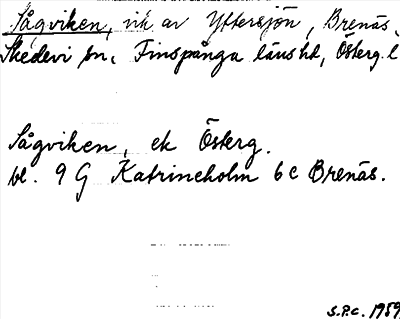 Sågviken, vik av Yttersjön, Brenäs,
Skedevi sn. Finspånga läns hd, Österg. l
Sågviken, ek Österg.
bl. 9 G Katrineholm 6 c Brenäs.
S.P.C. 1959